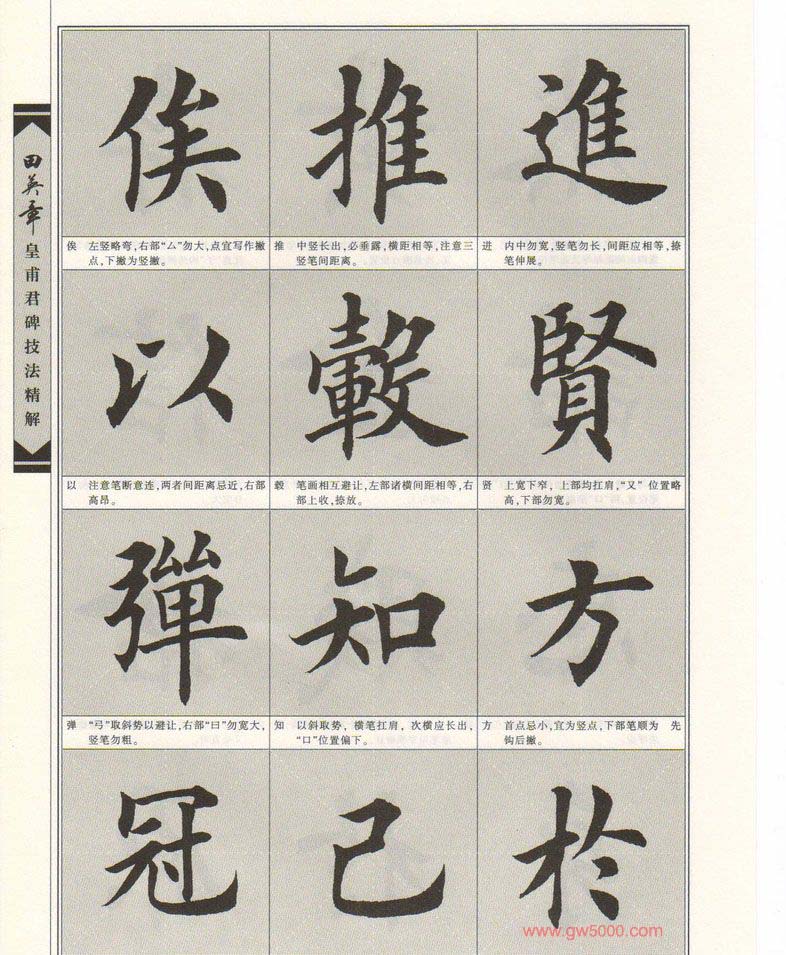 田英章
皇甫君碑技法精解
俟 推 進
俟 左竖略弯，右部“厶”勿大，点宜写作撇
点，下撇为竖撇。
推 中竖长出，必垂露，横距相等，注意三
竖笔间距离。
进 内中勿宽，竖笔勿长，间距应相等，捺
笔伸展。
以 轂 賢
以 注意笔断意连，两者间距离忌近，右部
高昂。
毂 笔画相互避让，左部诸横间距相等，右
部上收，捺放。
贤 上宽下窄，上部均扛肩，“又”位置略
高，下部勿宽。
彈 知 方
弹 “弓”取斜势以避让，右部“曰”勿宽大，
竖笔勿粗。
知 以斜取势，横笔扛肩，次横应长出，
“口”位置偏下。
方 首点忌小，宜为竖点，下部笔顺为 先
钩后撇。
冠 己 於
www.gw5000.com